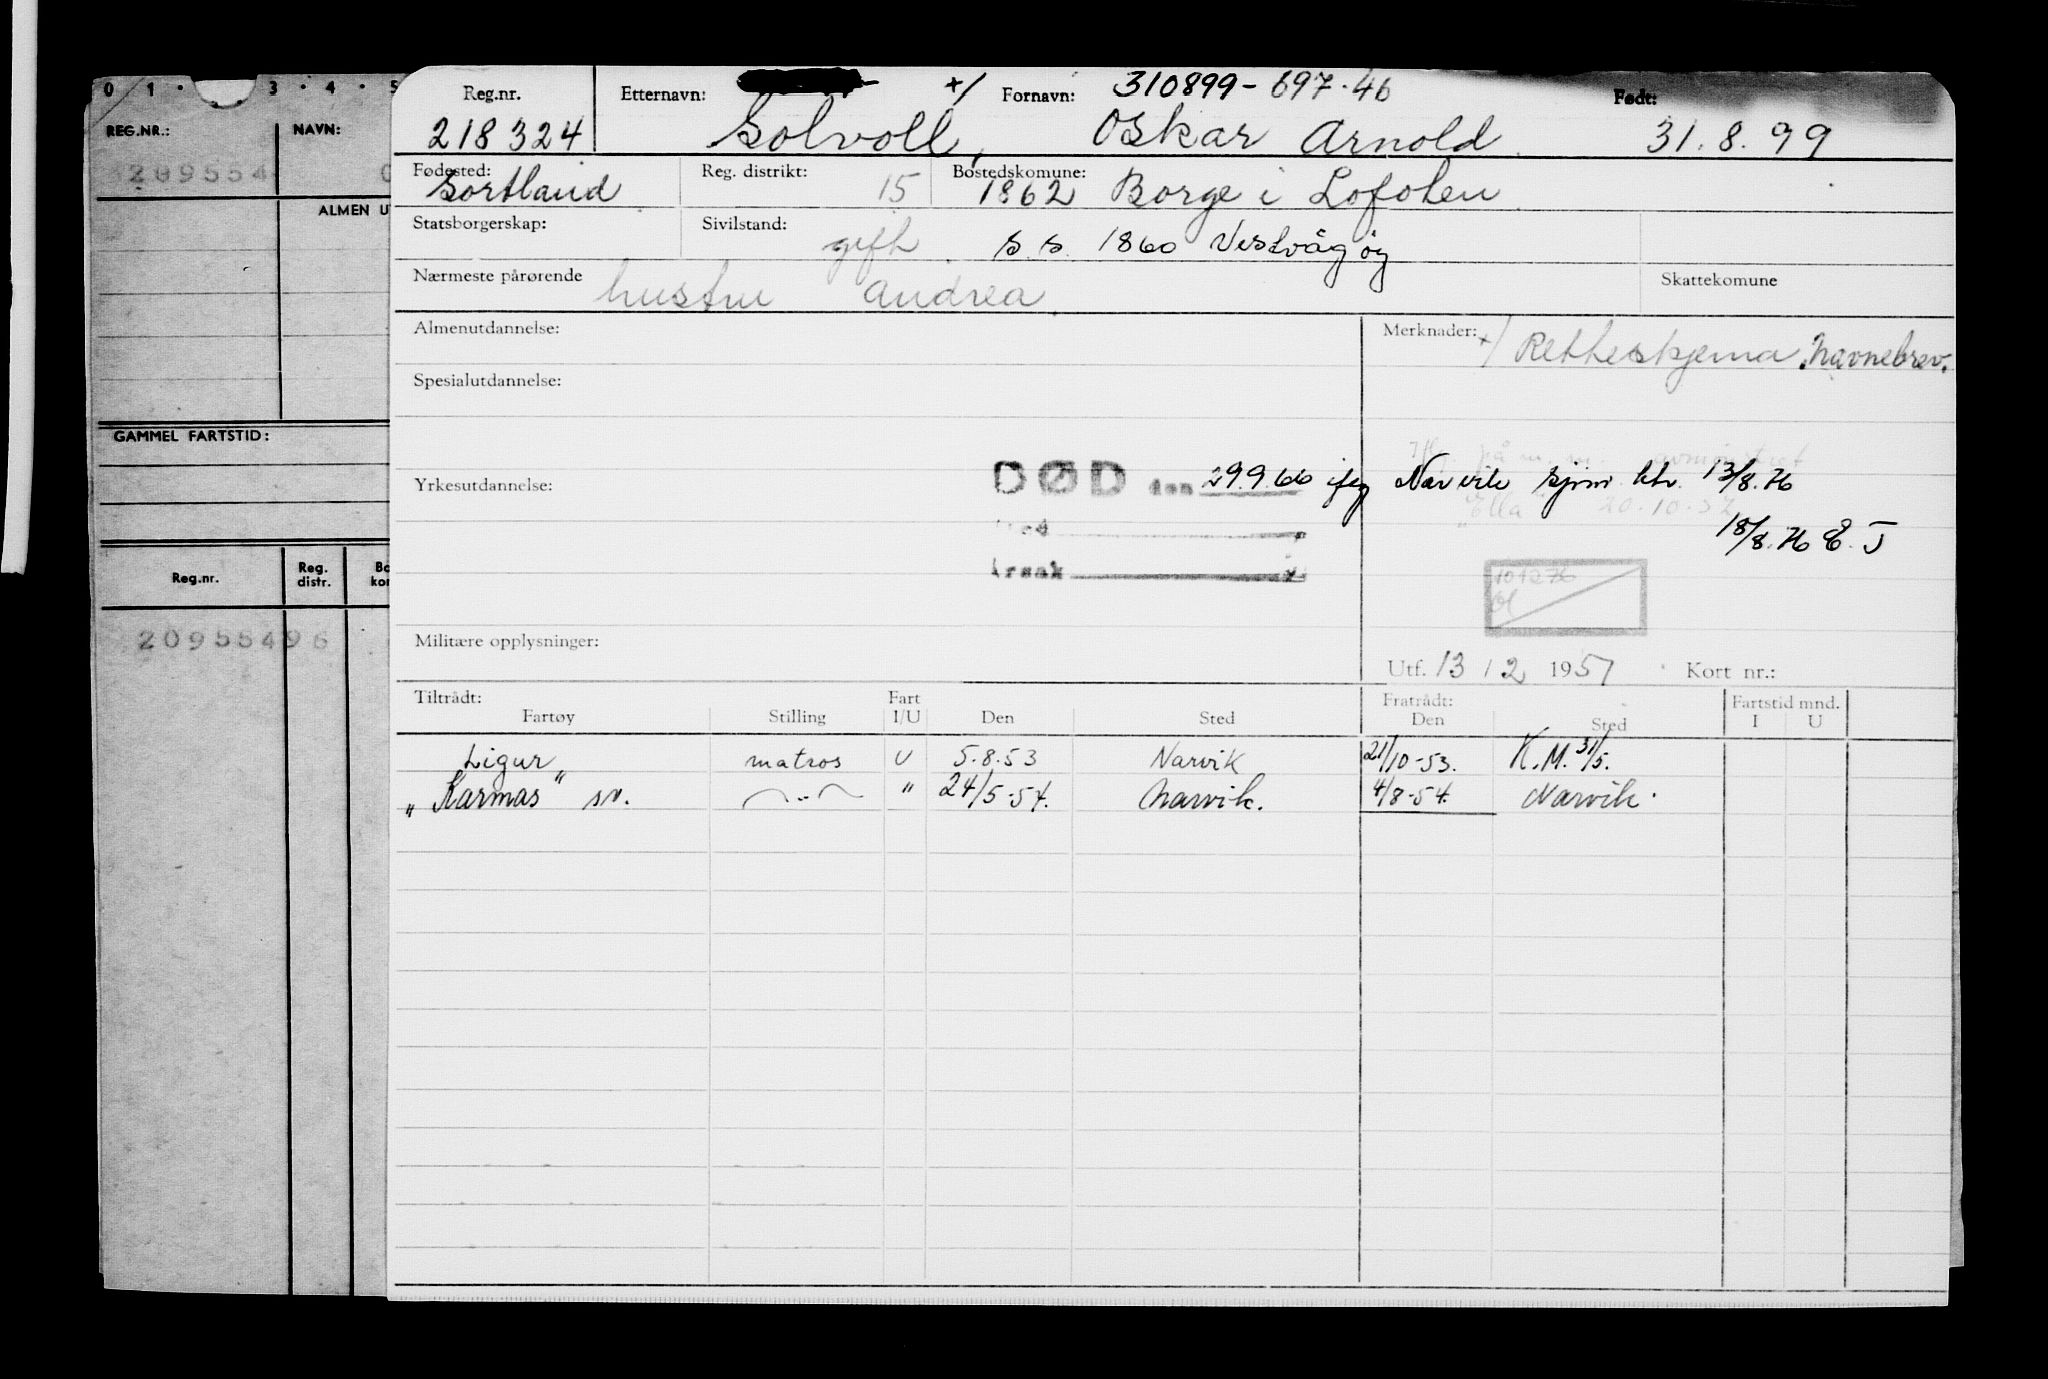 0 1 · 3 · 4 · 5
REG.NR.: NAVN:
209554
ALMEN U
GAMMEL FARTSTID:
Reg.nr. Reg. distr. Bo kor
20955496
Reg.nr. Etternavn: +/ Fornavn: 310899-697·46 Født:
218324 Solvoll, Oskar Arnold 31.8.99
Fødested: Reg. distrikt: Bostedskomune:
Sortland 15 1862 Borge i Lofoten
Statsborgerskap: Sivilstand:
gift s.s. 1860 Vestvågøy
Nærmeste pårørende Skattekomune
hustru Andrea
Almenutdannelse: Merknader:
+/ Retteskjema, navnebrev.
Spesialutdannelse:
Yrkesutdannelse: DØD den 29.9.66 iflg Narvik sjm. ktr. 13/8.76
"Ella" 20.10.52
18/8.76 E. J
Årsak
101276
Militære opplysninger:
Utf. 13 / 2 1951 Kort nr.:
Tiltrådt: Fart Fratrådt: Fartstid mnd.
Fartøy Stilling I/U Den Sted Den Sted I U
Ligur matros U 5.8.53 Narvik 21/10-53. K.M. 31/5.
„Karmas" sv. —〃— " 24/5-54. Narvik. 4/8-54. Narvik.